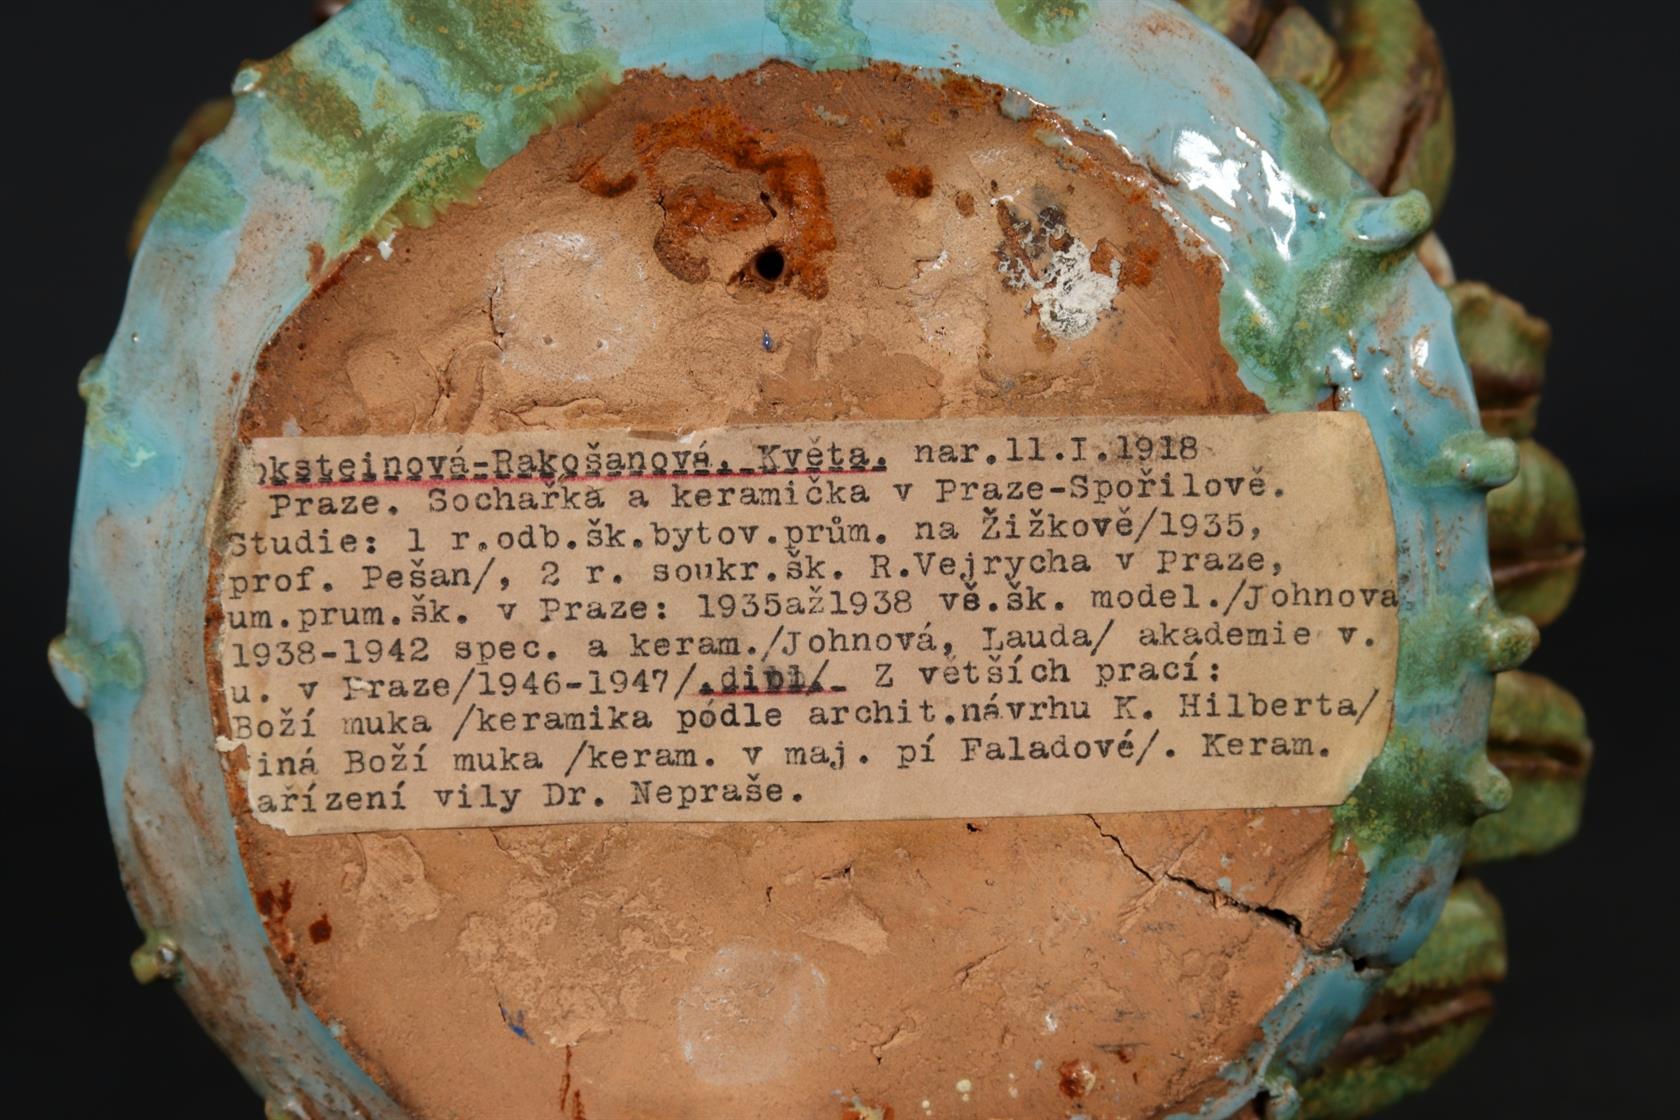 oksteinová-Rakošanová, Květa. nar.11.I.1918
Praze. Sochařka a keramička v Praze-Spořilově.
Studie: 1 r.odb.šk.bytov.prům. na Žižkově/1935,
prof. Pešan/, 2 r. soukr.šk. R.Vejrycha v Praze,
um.prum.šk. v Praze: 1935až1938 vš.šk. model./Johnova
1938-1942 spec. a keram./Johnová, Lauda/ akademie v.
u. v Praze/1946-1947/.dipl/. Z větších prací:
Boží muka /keramika pódle archit.návrhu K. Hilberta/
iná Boží muka /keram. v maj. pí Faladové/. Keram.
ařízení vily Dr. Nepraše.